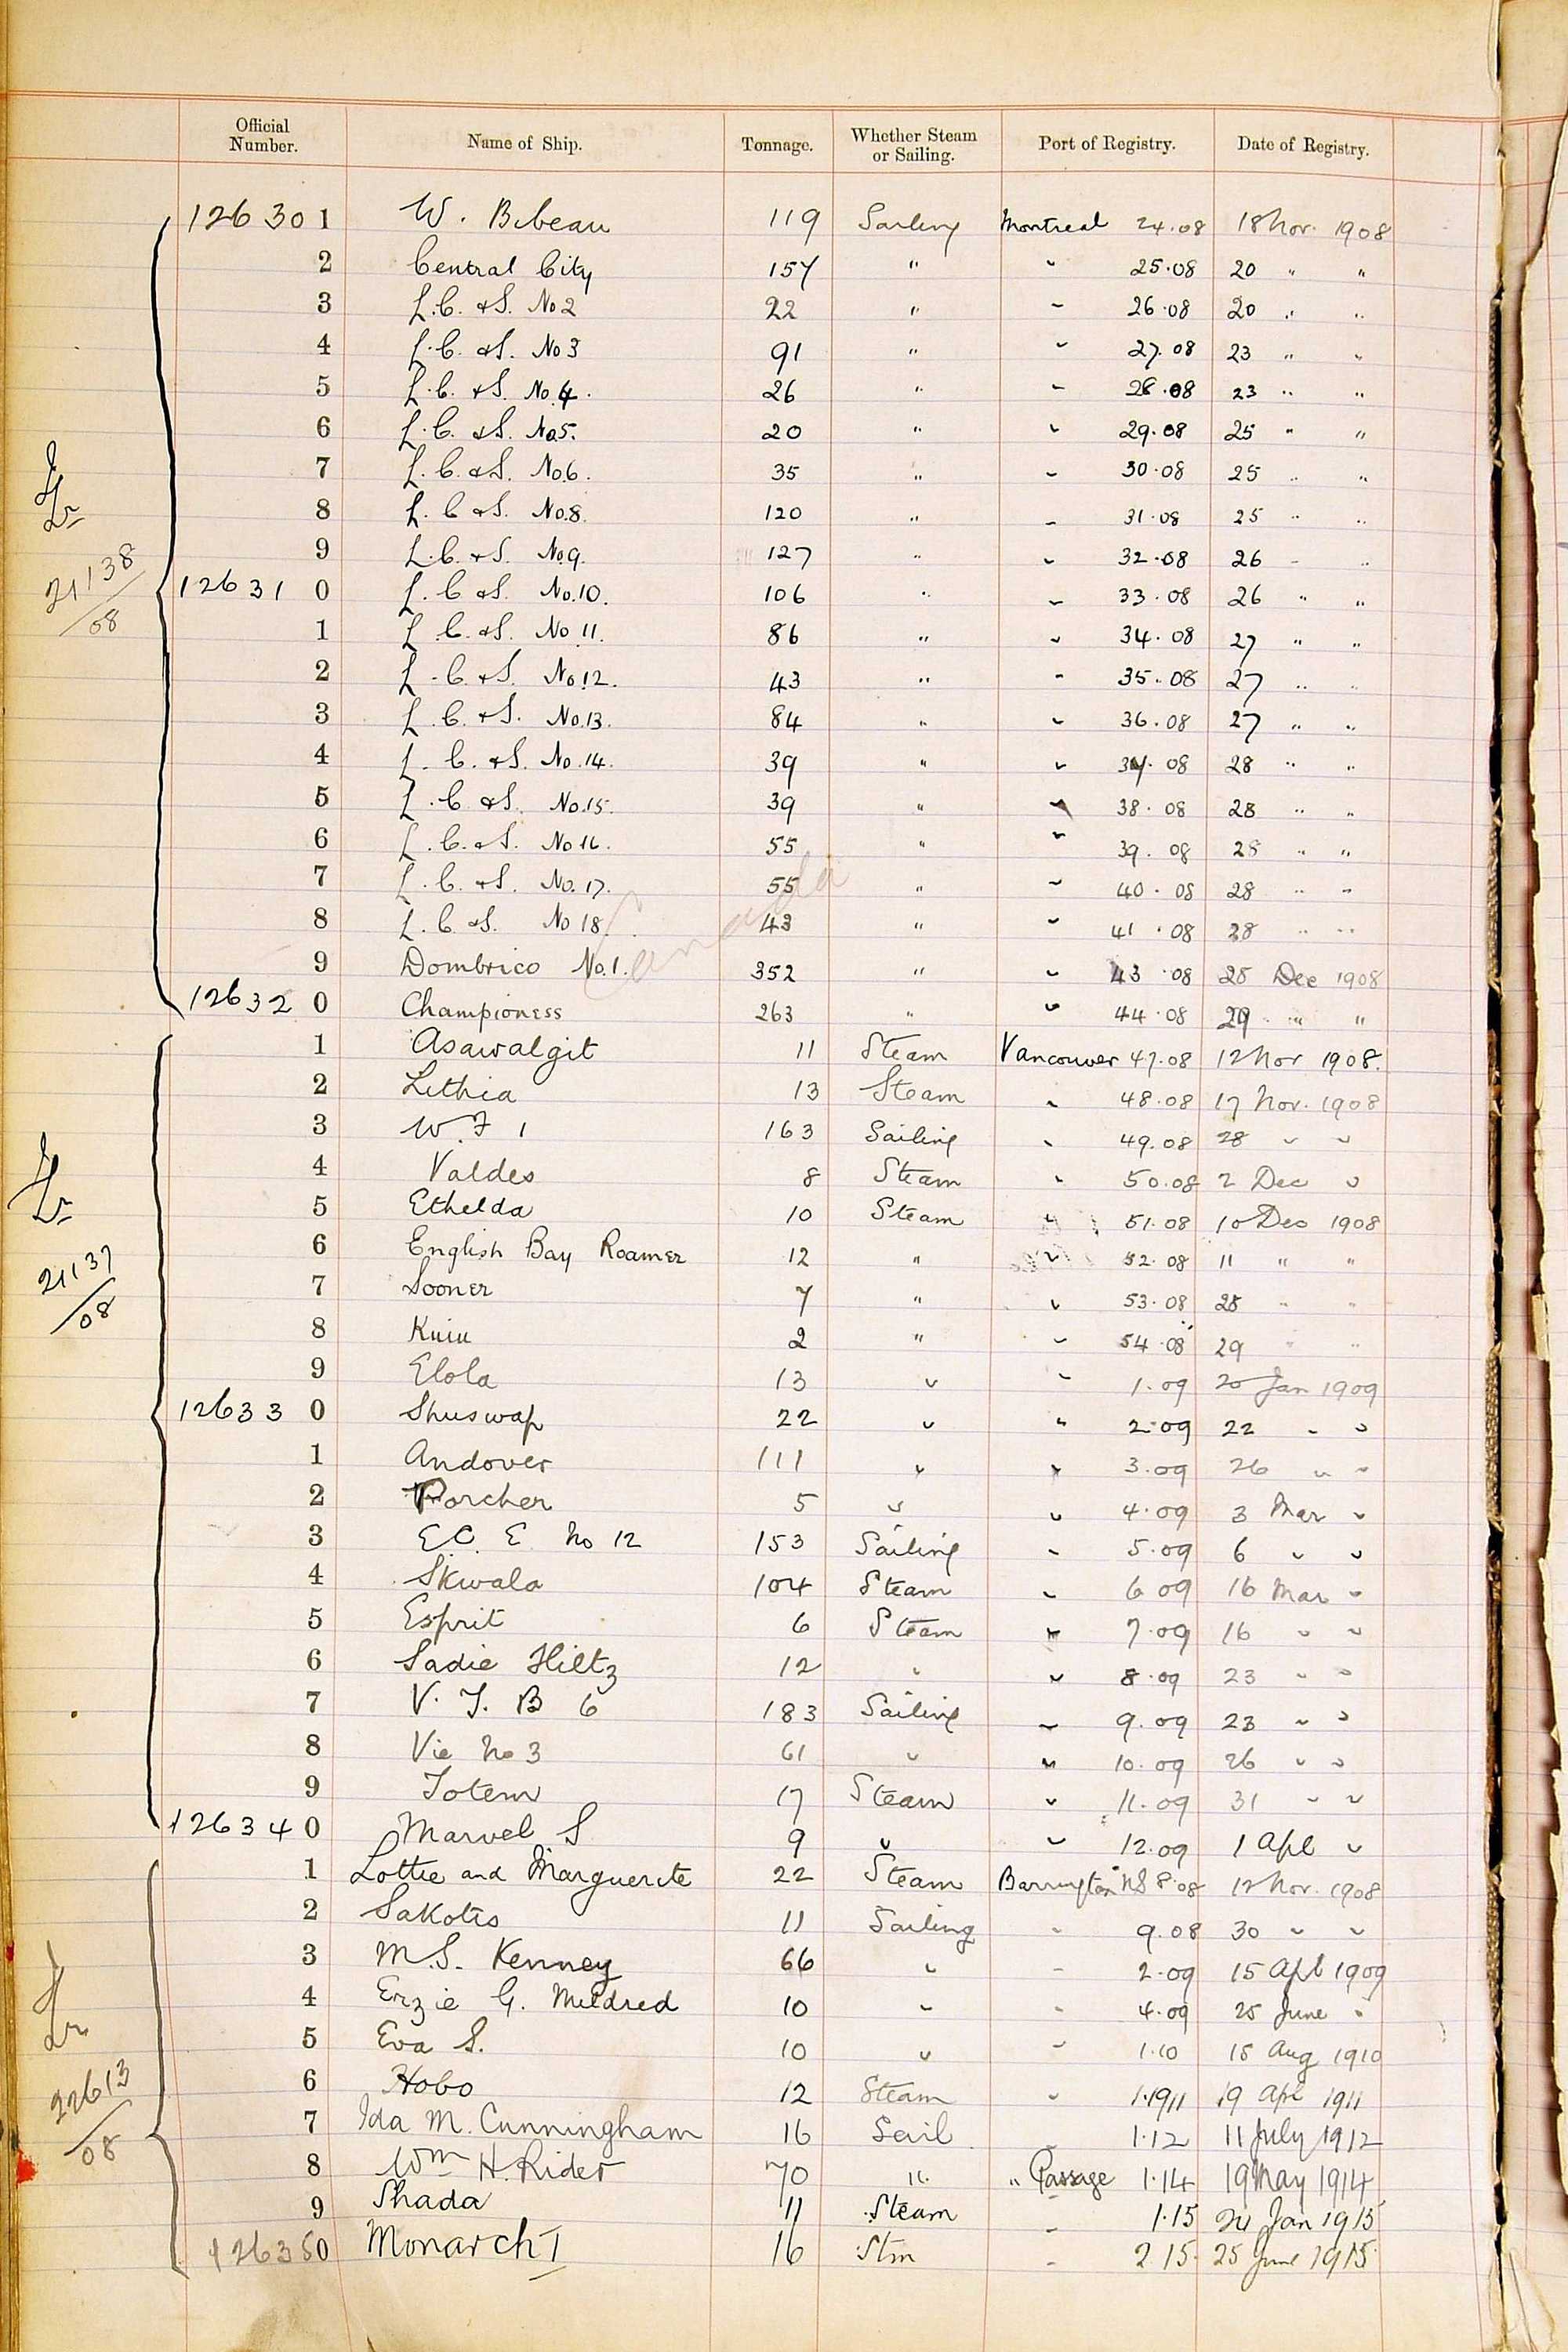 Official Number. Name of Ship. Tonnage. Whether Steam or Sailing. Port of Registry. Date of Registry.
126301 W. Bibeau 119 Sailing Montreal 24.08 18 Nov. 1908
2 Central City 157 " " 25.08 20 " "
3 L.C. & S. No 2 22 " " 26.08 20 " "
4 L.C. & S. No 3 91 " " 27.08 23 " "
5 L.C. & S. No. 4. 26 " " 28.08 23 " "
6 L.C. & S. No.5. 20 " " 29.08 25 " "
7 L.C. & S. No.6. 35 " " 30.08 25 " "
8 L.C & S. No.8. 120 " " 31.08 25 " "
9 L.C. & S. No.9. 127 " " 32.08 26 " "
21138/08
126310 L.C & S. No.10. 106 " " 33.08 26 " "
1 L.C. & S. No 11. 86 " " 34.08 27 " "
2 L.C. & S. No.12. 43 " " 35.08 27 " "
3 L.C. & S. No.13. 84 " " 36.08 27 " "
4 L.C. & S. No.14. 39 " " 37.08 28 " "
5 L.C & S. No.15. 39 " " 38.08 28 " "
6 L.C. & S. No 16. 55 " " 39.08 28 " "
7 L.C. & S. No. 17. 55 " " 40.08 28 " "
8 L.C & S. No 18. 43 " " 41.08 28 " "
Canada
9 Dombrico No.1. 352 " " 43.08 28 Dec 1908
126320 Championess 263 " " 44.08 29 " "
1 Asawalgit 11 Steam Vancouver 47.08 12 Nov 1908.
2 Lithia 13 Steam " 48.08 17 Nov. 1908
3 W.F 1 163 Sailing " 49.08 28 " "
4 Valdes 8 Steam " 50.08 2 Dec "
5 Ethelda 10 Steam " 51.08 10 Dec 1908
6 English Bay Roamer 12 " " 52.08 11 " "
21137/08
7 Sooner 7 " " 53.08 28 " "
8 Kuiu 2 " " 54.08 29 " "
9 Elola 13 " " 1.09 20 Jan 1909
126330 Shuswap 22 " " 2.09 22 " "
1 Andover 111 " " 3.09 26 " "
2 Porcher 5 " " 4.09 3 Mar "
3 E.C. E No 12 153 Sailing " 5.09 6 " "
4 Skwala 104 Steam " 6 09 16 Mar "
5 Esprit 6 Steam " 7.09 16 " "
6 Sadie Hiltz 12 " " 8.09 23 " "
7 V. T. B 6 183 Sailing " 9.09 23 " "
8 Vic No 3 61 " " 10.09 26 " "
9 Totem 17 Steam " 11.09 31 " "
126340 Marvel S 9 " " 12.09 1 Apl "
1 Lottie and Marguerite 22 Steam Barrington NS 8.08 12 Nov. 1908
2 Sakotis 11 Sailing " 9.08 30 " "
3 M.S. Kenney 66 " " 2.09 15 Apl 1909
4 Erzie G. Mildred 10 " " 4.09 25 June "
5 Eva S. 10 " " 1.10 15 Aug 1910
6 Hobo 12 Steam " 1.1911 19 Apl 1911
22613/08
7 Ida M. Cunningham 16 Sail " 1.12 11 July 1912
8 Wm H. Rider 70 " " Passage 1.14 19 May 1914
9 Shada 11 Steam " 1.15 Jan 1915
126350 Monarch I 16 Stm " 2 15. 25 June 1915